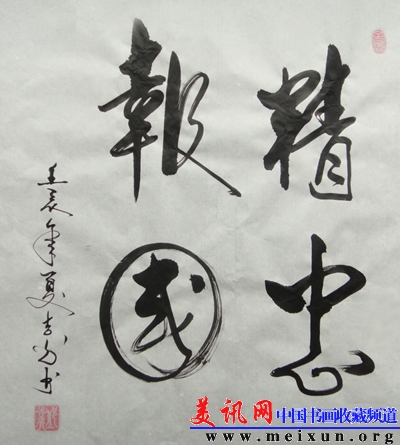 精忠
報國
壬辰年夏
美讯网 中国书画收藏频道
www.meixun.org